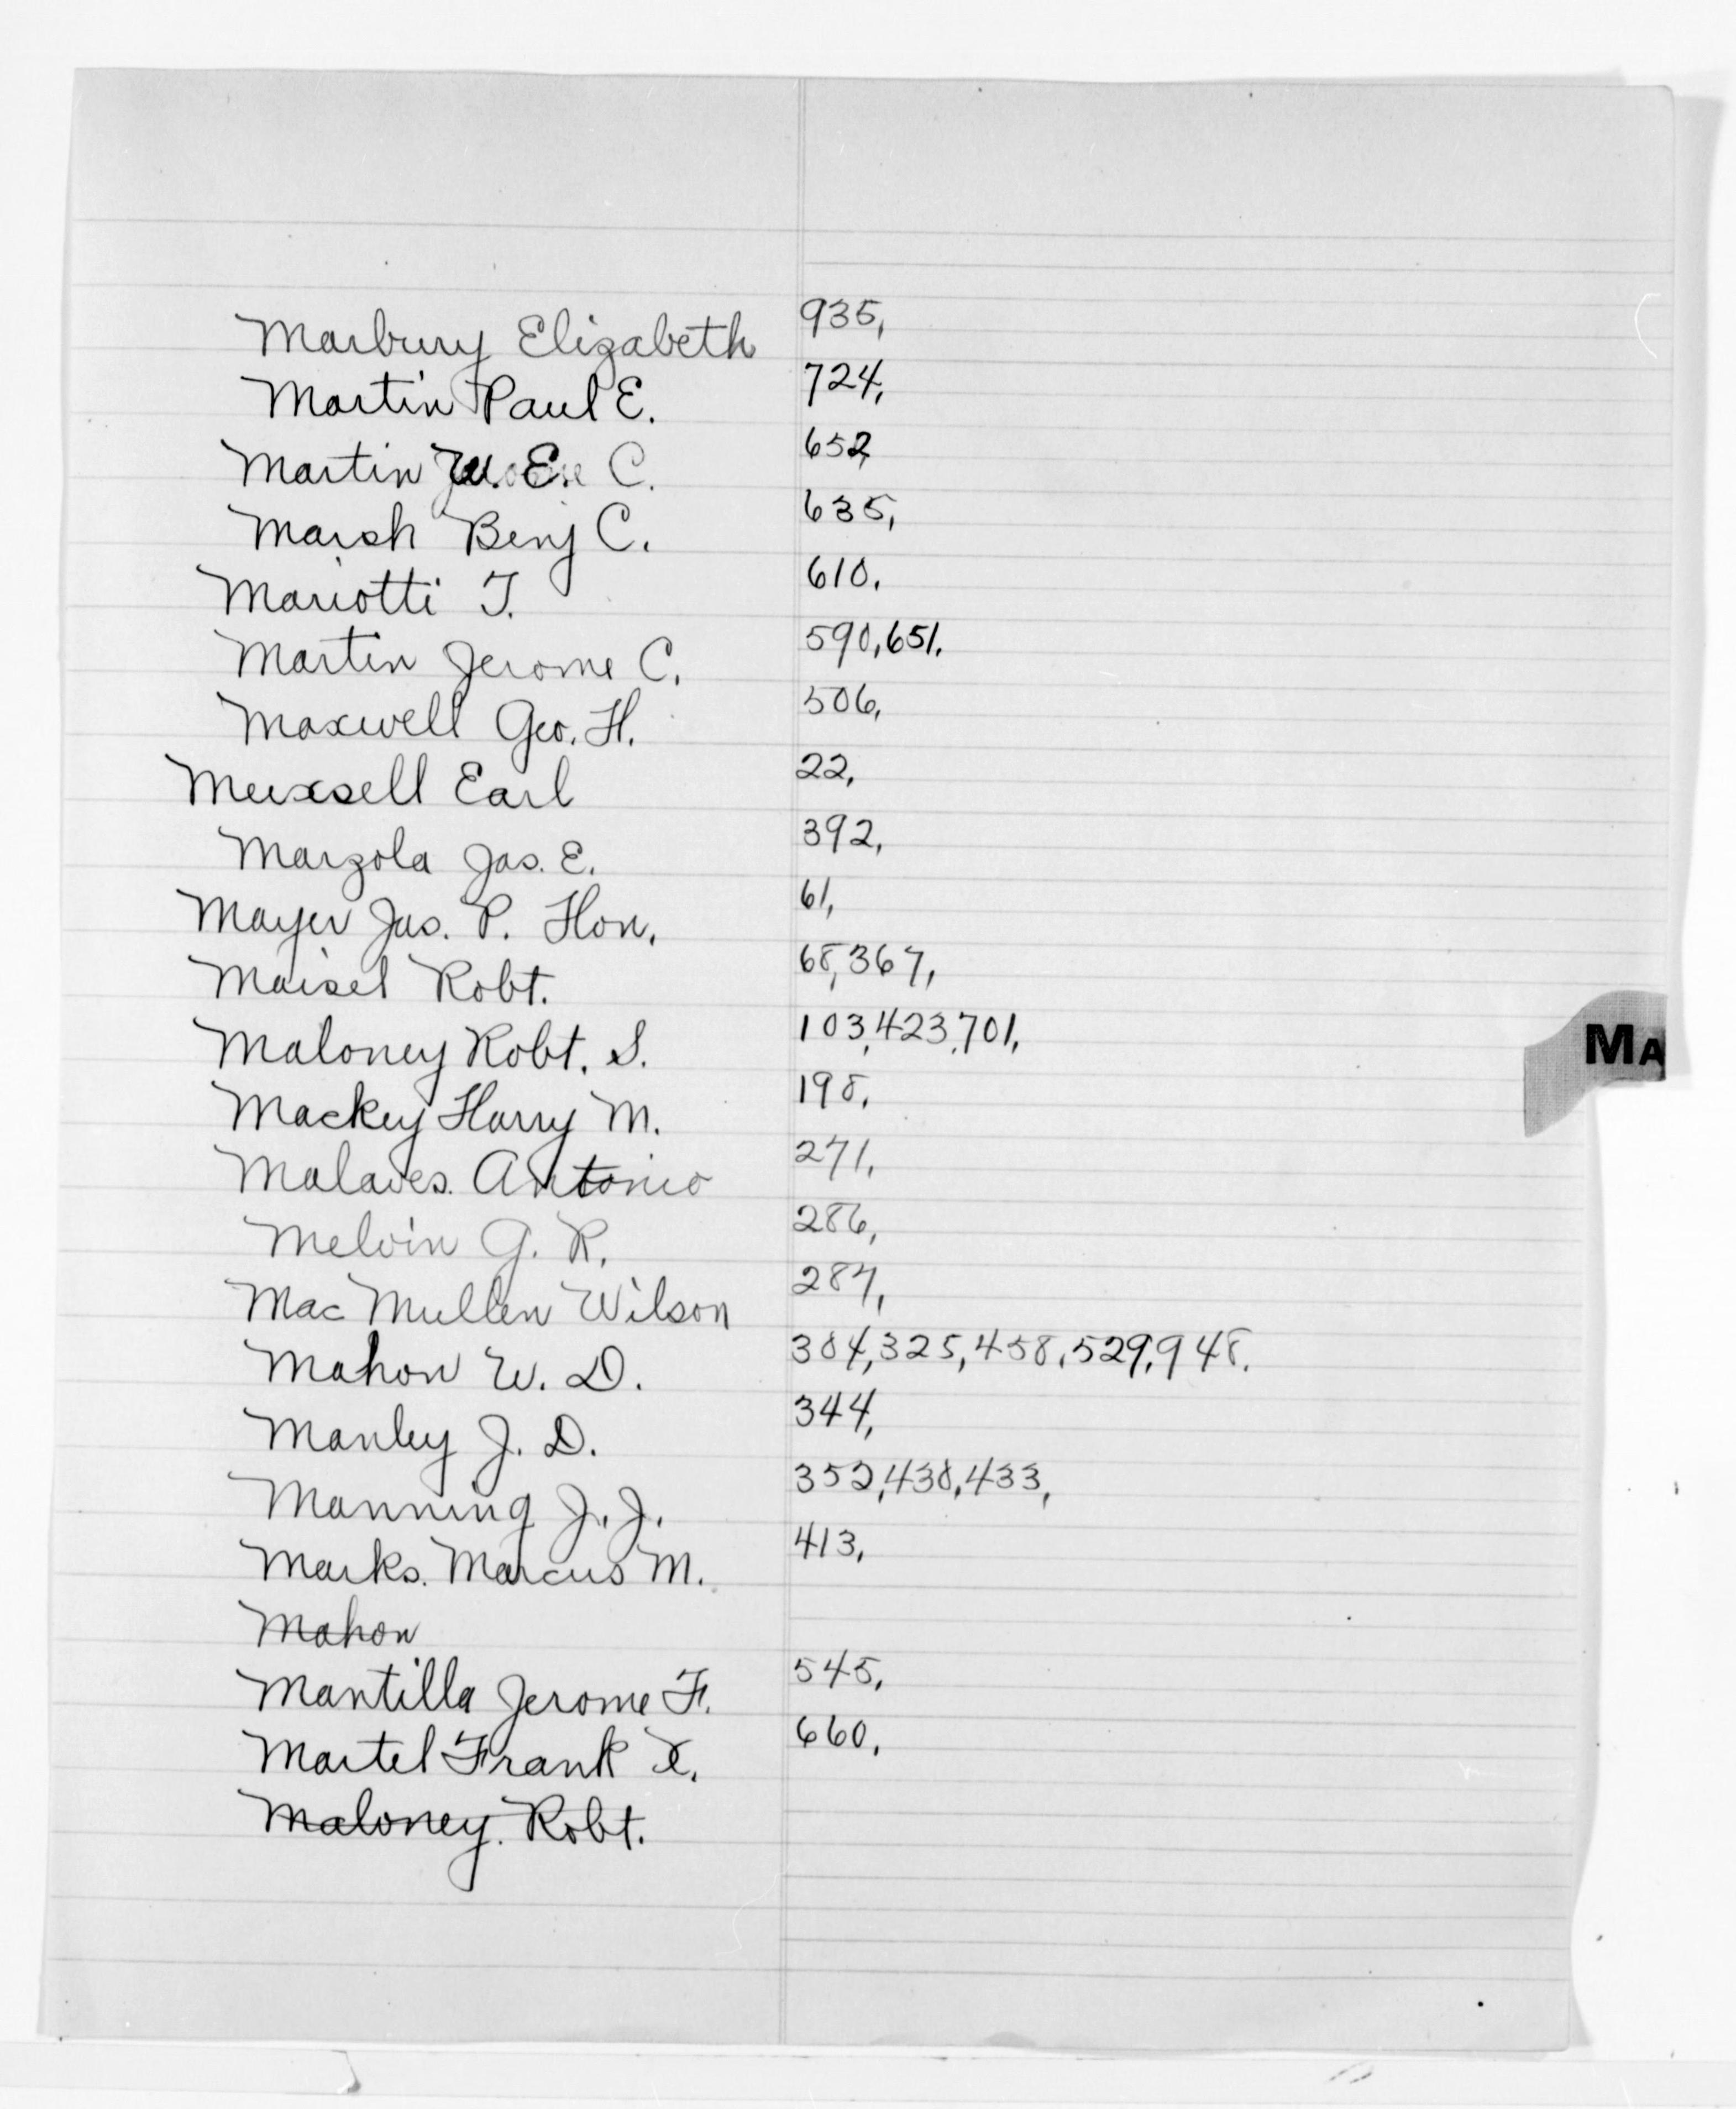 Marbury Elizabeth 935,
Martin Paul E. 724,
Martin W. E. C. 652,
Marsh Benj C. 635,
Mariotti T. 610.
Martin Jerome C. 590, 651.
Maxwell Geo. H. 506,
Meixsell Earl 22,
Marzola Jas. E. 392,
Mayer Jas. P. Hon. 61,
Maisel Robt. 68, 367,
Maloney Robt. S. 103, 423, 701,
MA
Mackey Harry M. 198,
Malaves. Antonio 271,
Melvin G. R. 286,
Mac Mullen Wilson 287,
Mahon W. D. 304, 325, 458, 529, 948.
Manley J. D. 344,
Manning J. J. 352, 430, 433,
Marks. Marcus M. 413,
Mahon
Mantilla Jerome F. 545,
Martel Frank X. 660,
Maloney. Robt.